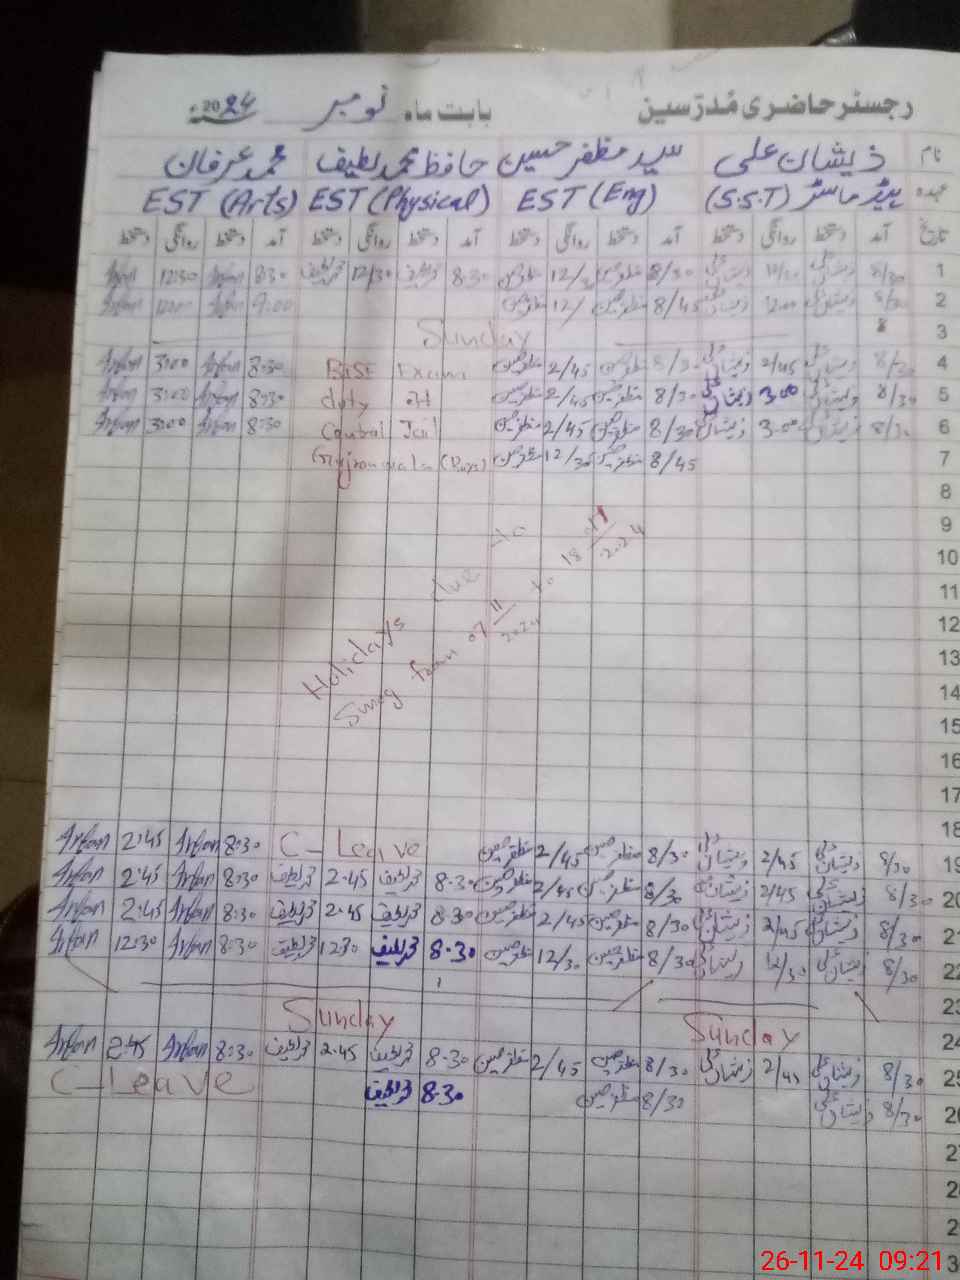 رجسٹر حاضری مُدرّسین بابت ماہ نومبر 2024ء
نام ذیشان علی سید مظفر حسین حافظ محمد لطیف محمد عرفان
عہدہ ہیڈ ماسٹر (S.S.T) EST (Eng) EST (Physical) EST (Arts)
تاریخ آمد دستخط روانگی دستخط آمد دستخط روانگی دستخط آمد دستخط روانگی دستخط آمد دستخط روانگی دستخط
1 8/30 ذیشان علی ذیشان علی 8/30 مظفر حسین 12/30 مظفر حسین 8:30 محمد لطیف 12/30 محمد لطیف 8:30 Irfan 12:30 Irfan
2 8/30 ذیشان علی 12:00 ذیشان علی 8/45 مظفر حسین 12/ مظفر حسین 9:00 Irfan 12:00 Irfan
3 Sunday
4 8/30 ذیشان علی 2/45 ذیشان علی 8/30 مظفر حسین 2/45 مظفر حسین BISE Exam 8:30 Irfan 3:00 Irfan
5 8/30 ذیشان علی 3:00 ذیشان علی 8/30 مظفر حسین 2/45 مظفر حسین duty at 8:30 Irfan 3:00 Irfan
6 8/30 ذیشان علی 3:00 ذیشان علی 8/30 مظفر حسین 2/45 مظفر حسین Central Jail 8:30 Irfan 3:00 Irfan
7 8/45 مظفر حسین 12/30 مظفر حسین Gujranwala
8
9
10
11
12
13
14
15
16
17
Holidays due to
Smog from 07 11/2024 to 18 /2024
18
19 8/30 ذیشان علی 2/45 ذیشان علی 8/30 مظفر حسین 2/45 مظفر حسین C-Leave 8:30 Irfan 2:45 Irfan
20 8/30 ذیشان علی 2/45 ذیشان علی 8/30 مظفر حسین 2/45 مظفر حسین 8:30 محمد لطیف 2:45 محمد لطیف 8:30 Irfan 2:45 Irfan
21 8/30 ذیشان علی 2/45 ذیشان علی 8/30 مظفر حسین 2/45 مظفر حسین 8:30 محمد لطیف 2:45 محمد لطیف 8:30 Irfan 2:45 Irfan
22 8/30 ذیشان علی 12/30 ذیشان علی 8/30 مظفر حسین 12/30 مظفر حسین 8:30 محمد لطیف 12:30 محمد لطیف 8:30 Irfan 12:30 Irfan
23
24 Sunday Sunday
25 8/30 ذیشان علی 2/45 ذیشان علی 8/30 مظفر حسین 2/45 مظفر حسین 8:30 محمد لطیف 2:45 محمد لطیف 8:30 Irfan 2:45 Irfan
26 8/30 ذیشان علی 8/30 مظفر حسین 8:30 محمد لطیف C-Leave
27
28
29
26-11-24 09:21